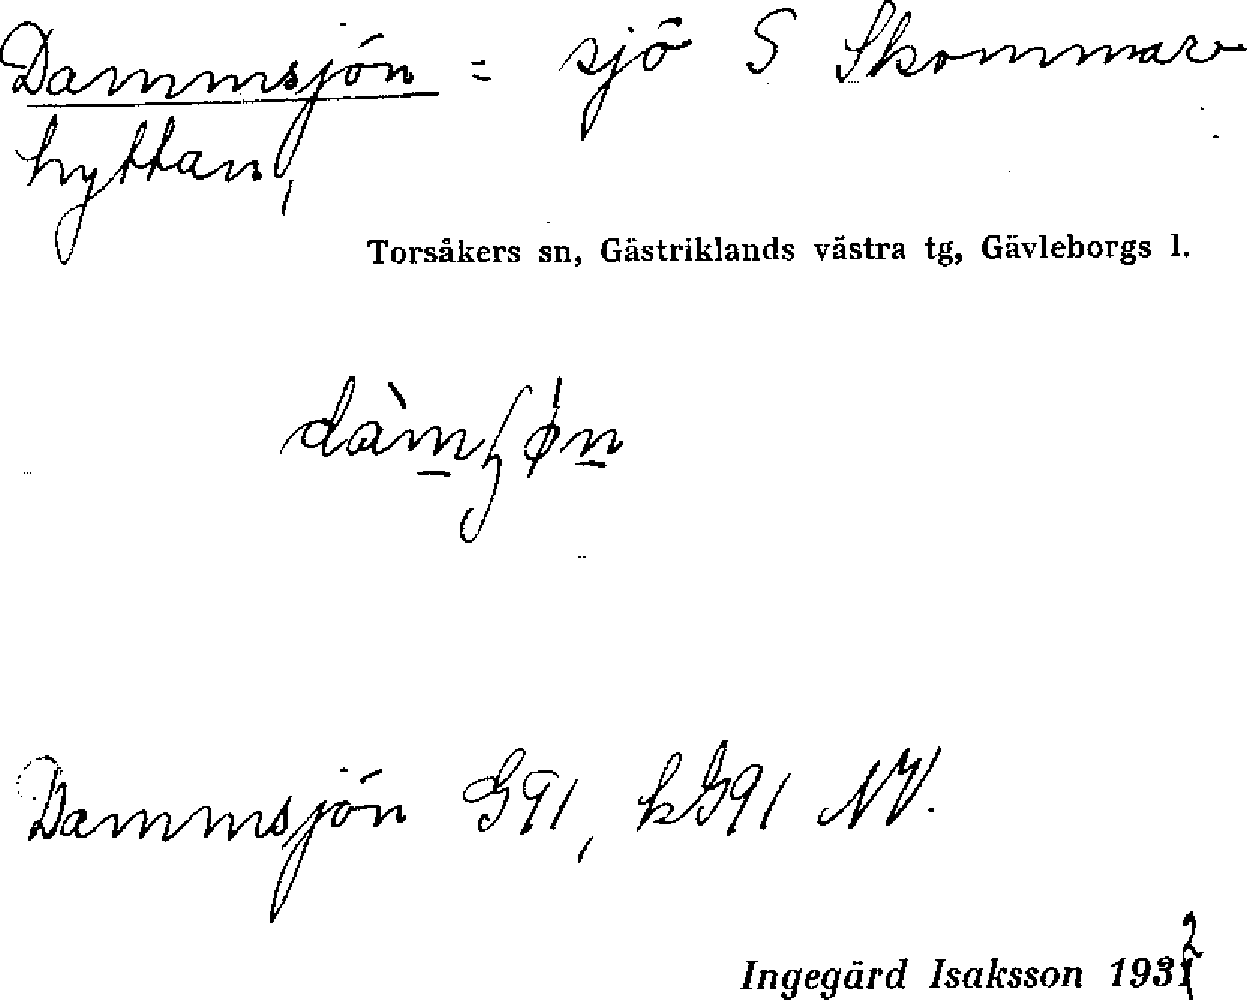 Dammsjön = sjö S Skommar
hyttan,
Torsåkers sn, Gästriklands västra tg, Gävleborgs l.
Dammsjön G91, kG91 NV.
Ingegärd Isaksson 1932